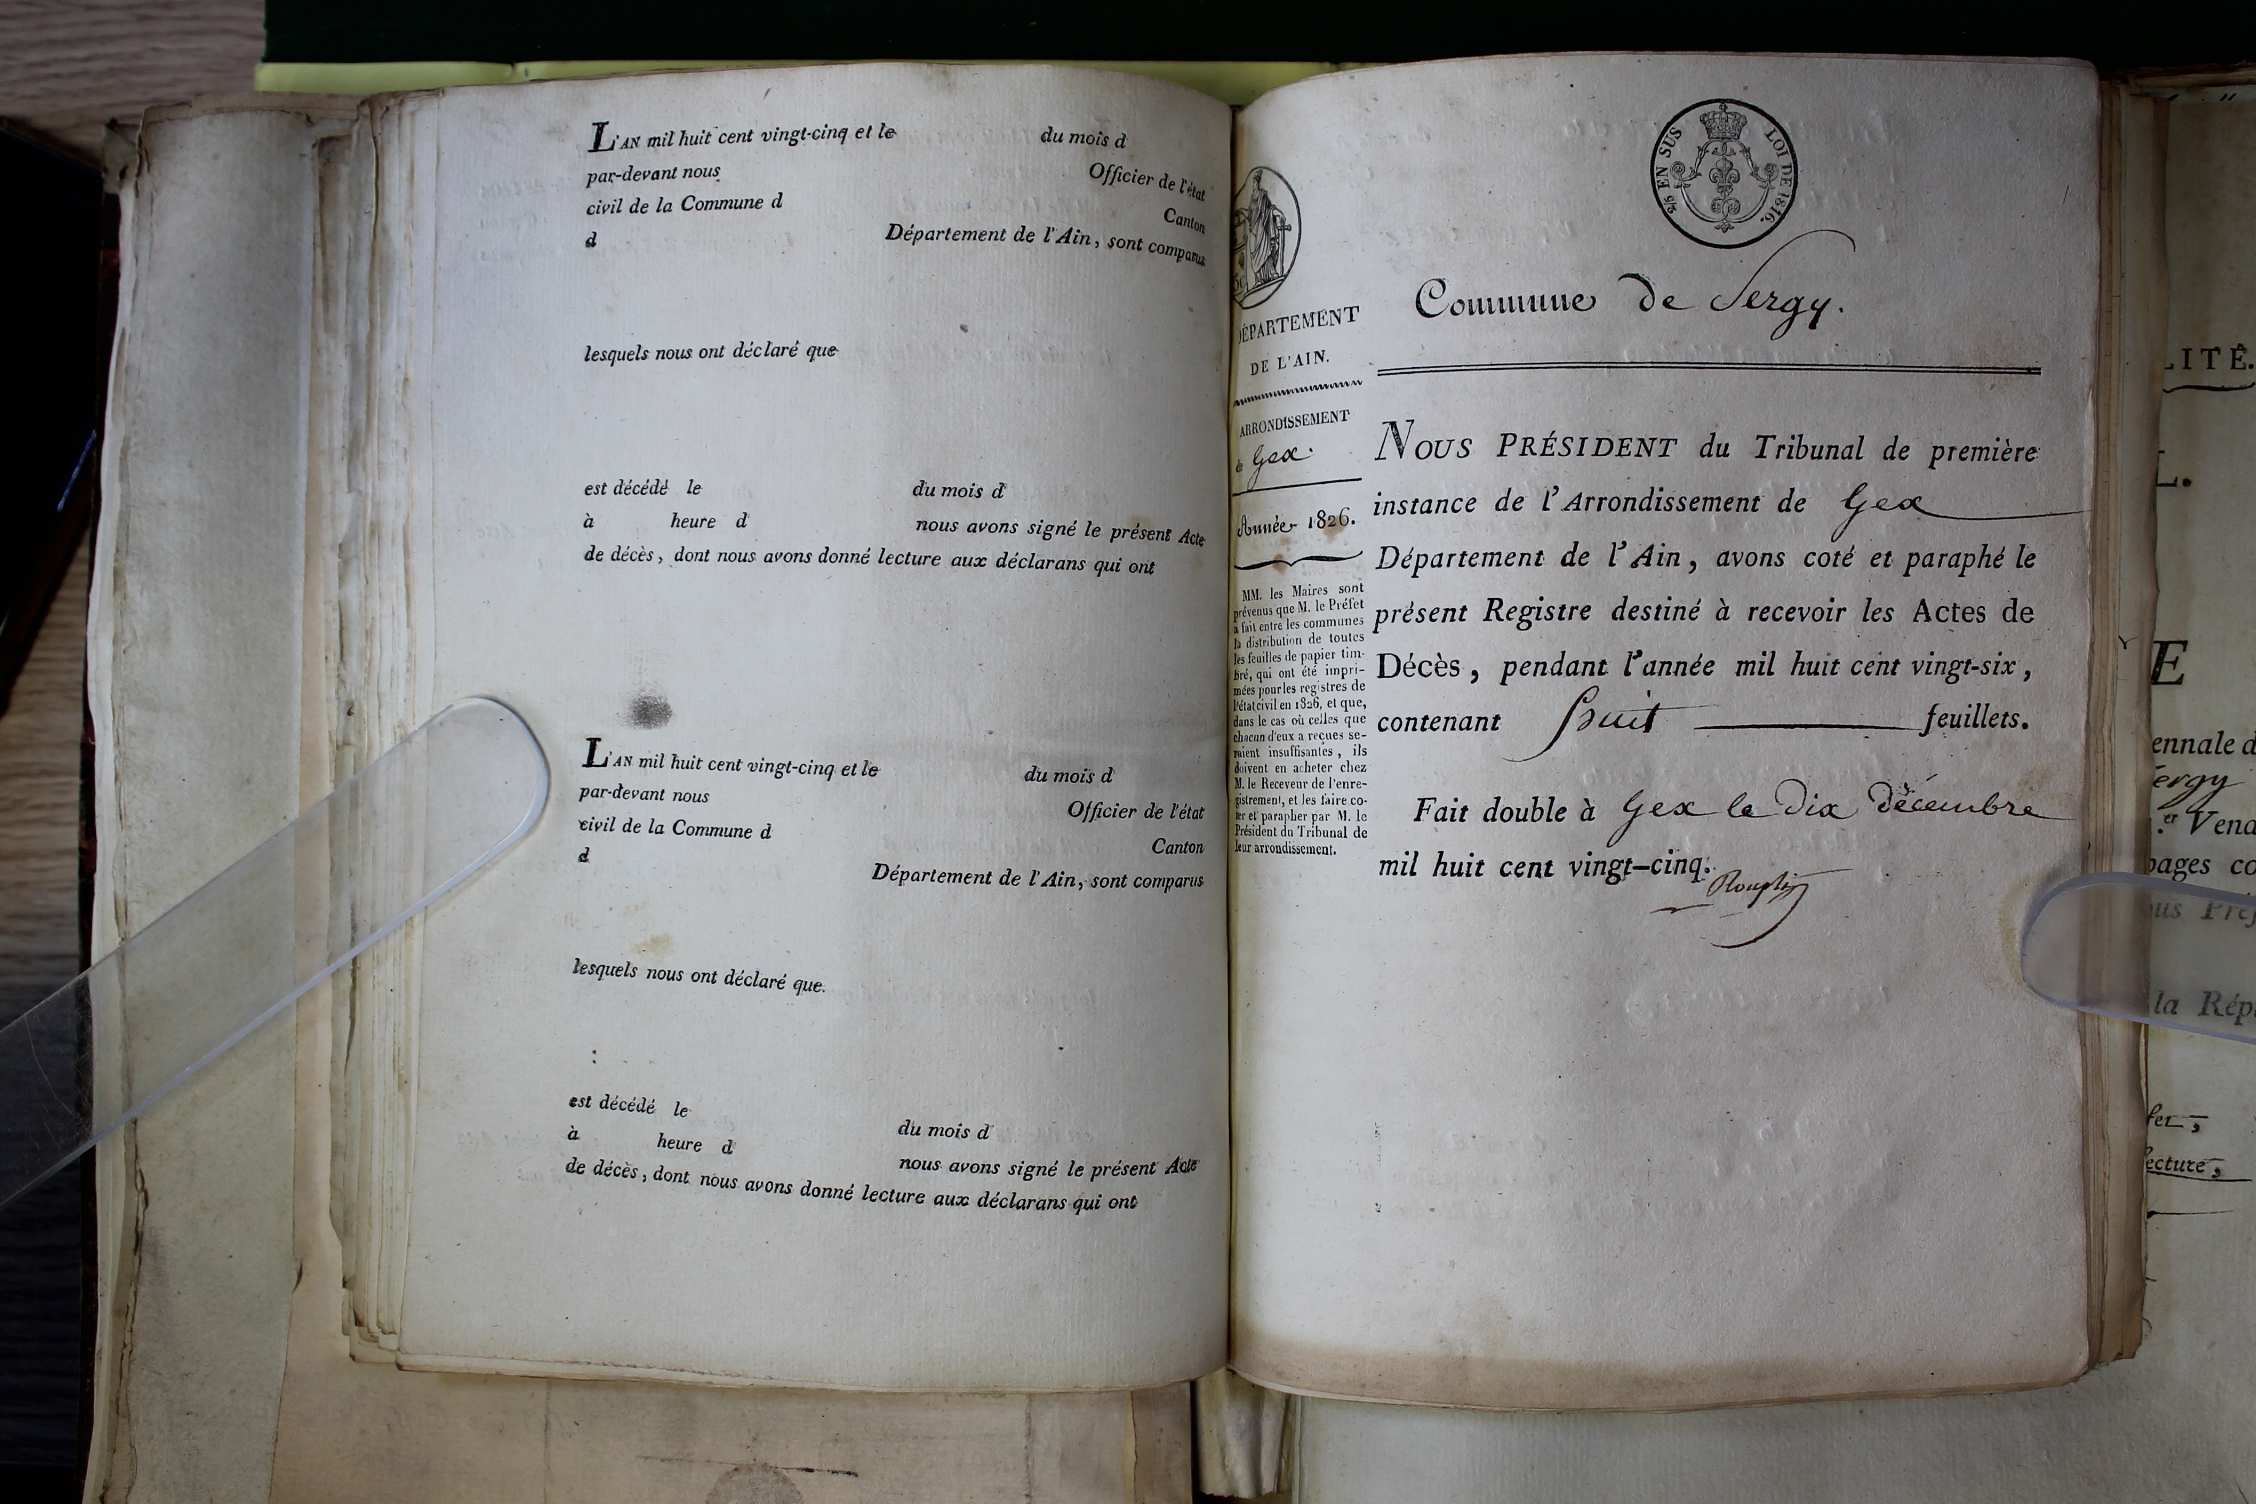 L'AN mil huit cent vingt-cinq et le du mois d
par-devant nous Officier de l'état
civil de la Commune d Canton
d Département de l'Ain, sont comparus
lesquels nous ont déclaré que
est décédé le du mois d
à heure d nous avons signé le présent Acte
de décès, dont nous avons donné lecture aux déclarans qui ont
L'AN mil huit cent vingt-cinq et le du mois d
par-devant nous Officier de l'état
civil de la Commune d Canton
d Département de l'Ain, sont comparus
lesquels nous ont déclaré que
est décédé le du mois d
à heure d nous avons signé le présent Acte
de décès, dont nous avons donné lecture aux déclarans qui ont
EN SUS LOI DE 1816.
Commune de Sergy.
DÉPARTEMENT
DE L'AIN.
ARRONDISSEMENT
de Gex.
Année 1826.
MM. les Maires sont
prévenus que M. le Préfet
a fait entre les communes
la distribution de toutes
les feuilles de papier tim-
bré, qui ont été impri-
mées pour les registres de
l'état civil en 1826, et que,
dans le cas où celles que
chacun d'eux a reçues se-
raient insuffisantes, ils
doivent en acheter chez
M. le Receveur de l'enre-
gistrement, et les faire co-
ter et parapher par M. le
Président du Tribunal de
leur arrondissement.
NOUS PRÉSIDENT du Tribunal de première
instance de l'Arrondissement de Gex
Département de l'Ain, avons coté et paraphé le
présent Registre destiné à recevoir les Actes de
Décès, pendant l'année mil huit cent vingt-six,
contenant huit feuillets.
Fait double à Gex le dix décembre
mil huit cent vingt-cinq.
LITÉ.
L.
E
ennale d
ergy
er Vend
pages co
ous Préf
la Répu
ecture,